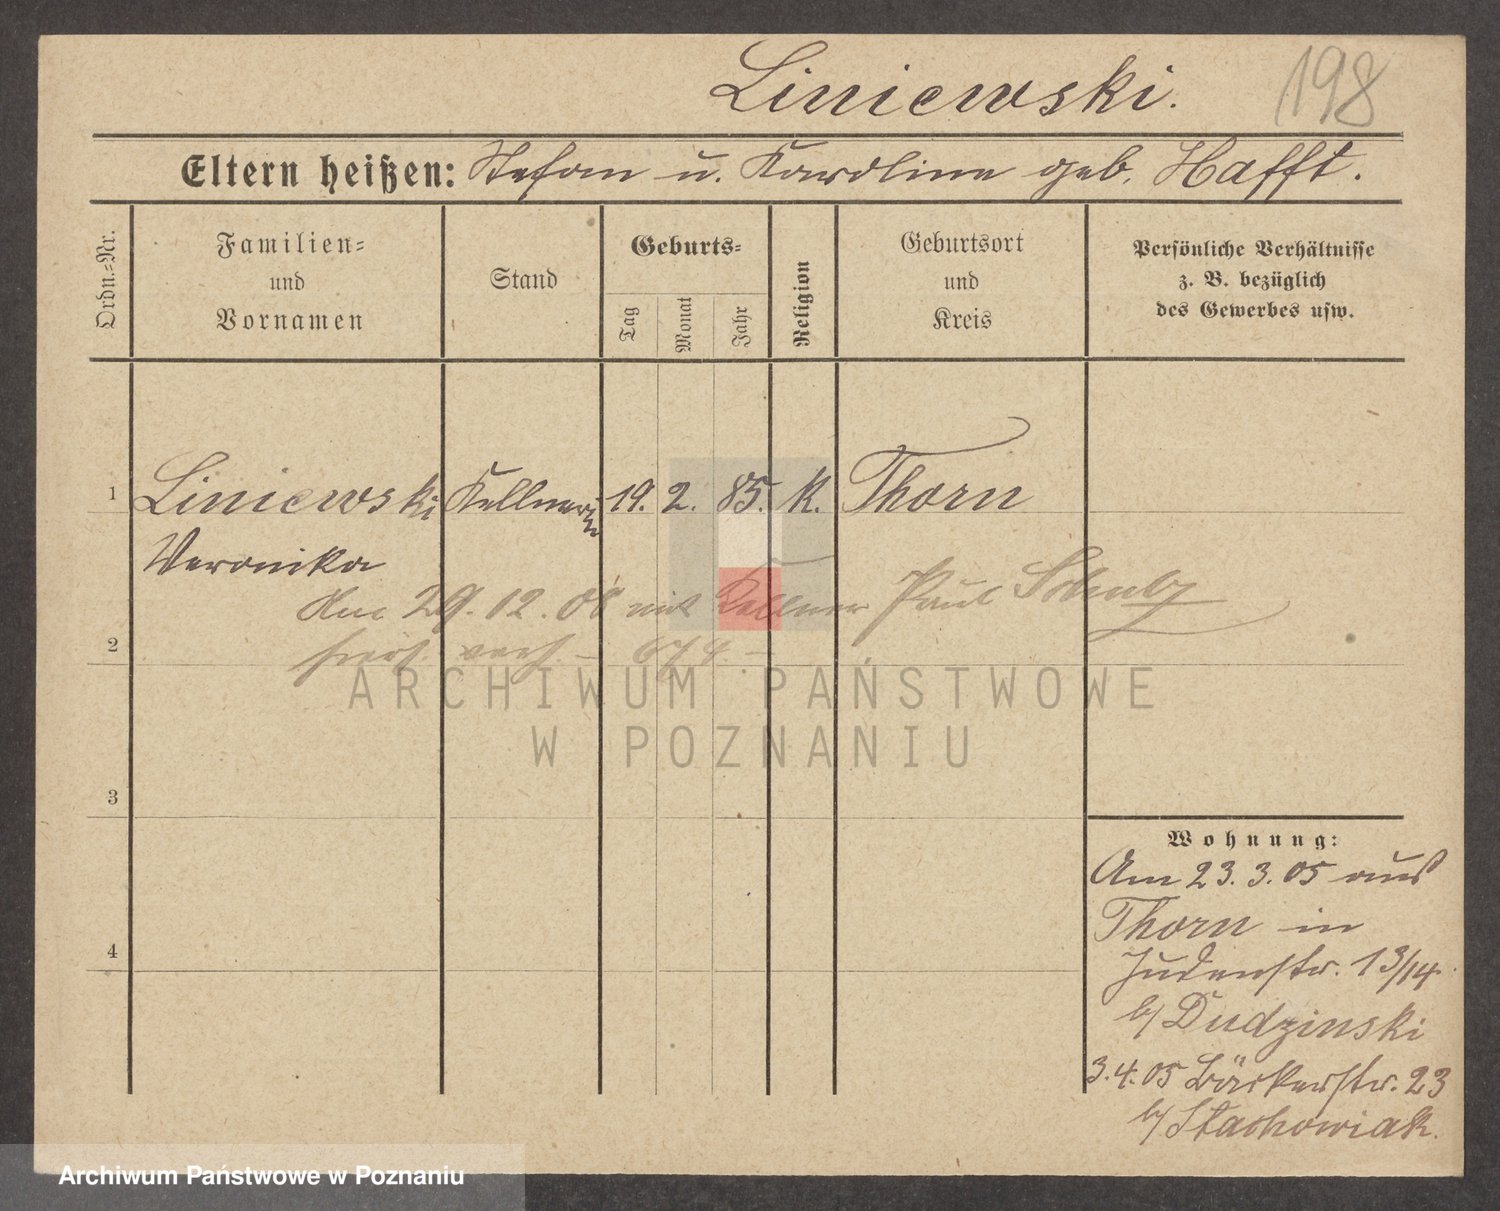 Liniewski. 198
Eltern heißen: Stefan u. Karoline geb. Hafft.
Ordn.-Nr.
Familien-
und
Vornamen
Stand
Geburts-
Tag
Monat
Jahr
Religion
Geburtsort
und
Kreis
Persönliche Verhältnisse
z. B. bezüglich
des Gewerbes usw.
1 Liniewski Kellnerin 19. 2. 85. K. Thorn
Veronika
Am 29. 12. 08 mit Kellner Paul Schulz
2
hier verh. 674.
ARCHIWUM PAŃSTWOWE
W POZNANIU
3
Wohnung:
Am 23. 3. 05 aus
Thorn in
4
Judenstr. 13/14.
b/ Dudzinski
3. 4. 05 Bäckerstr. 23
b/ Stachowiak.
Archiwum Państwowe w Poznaniu